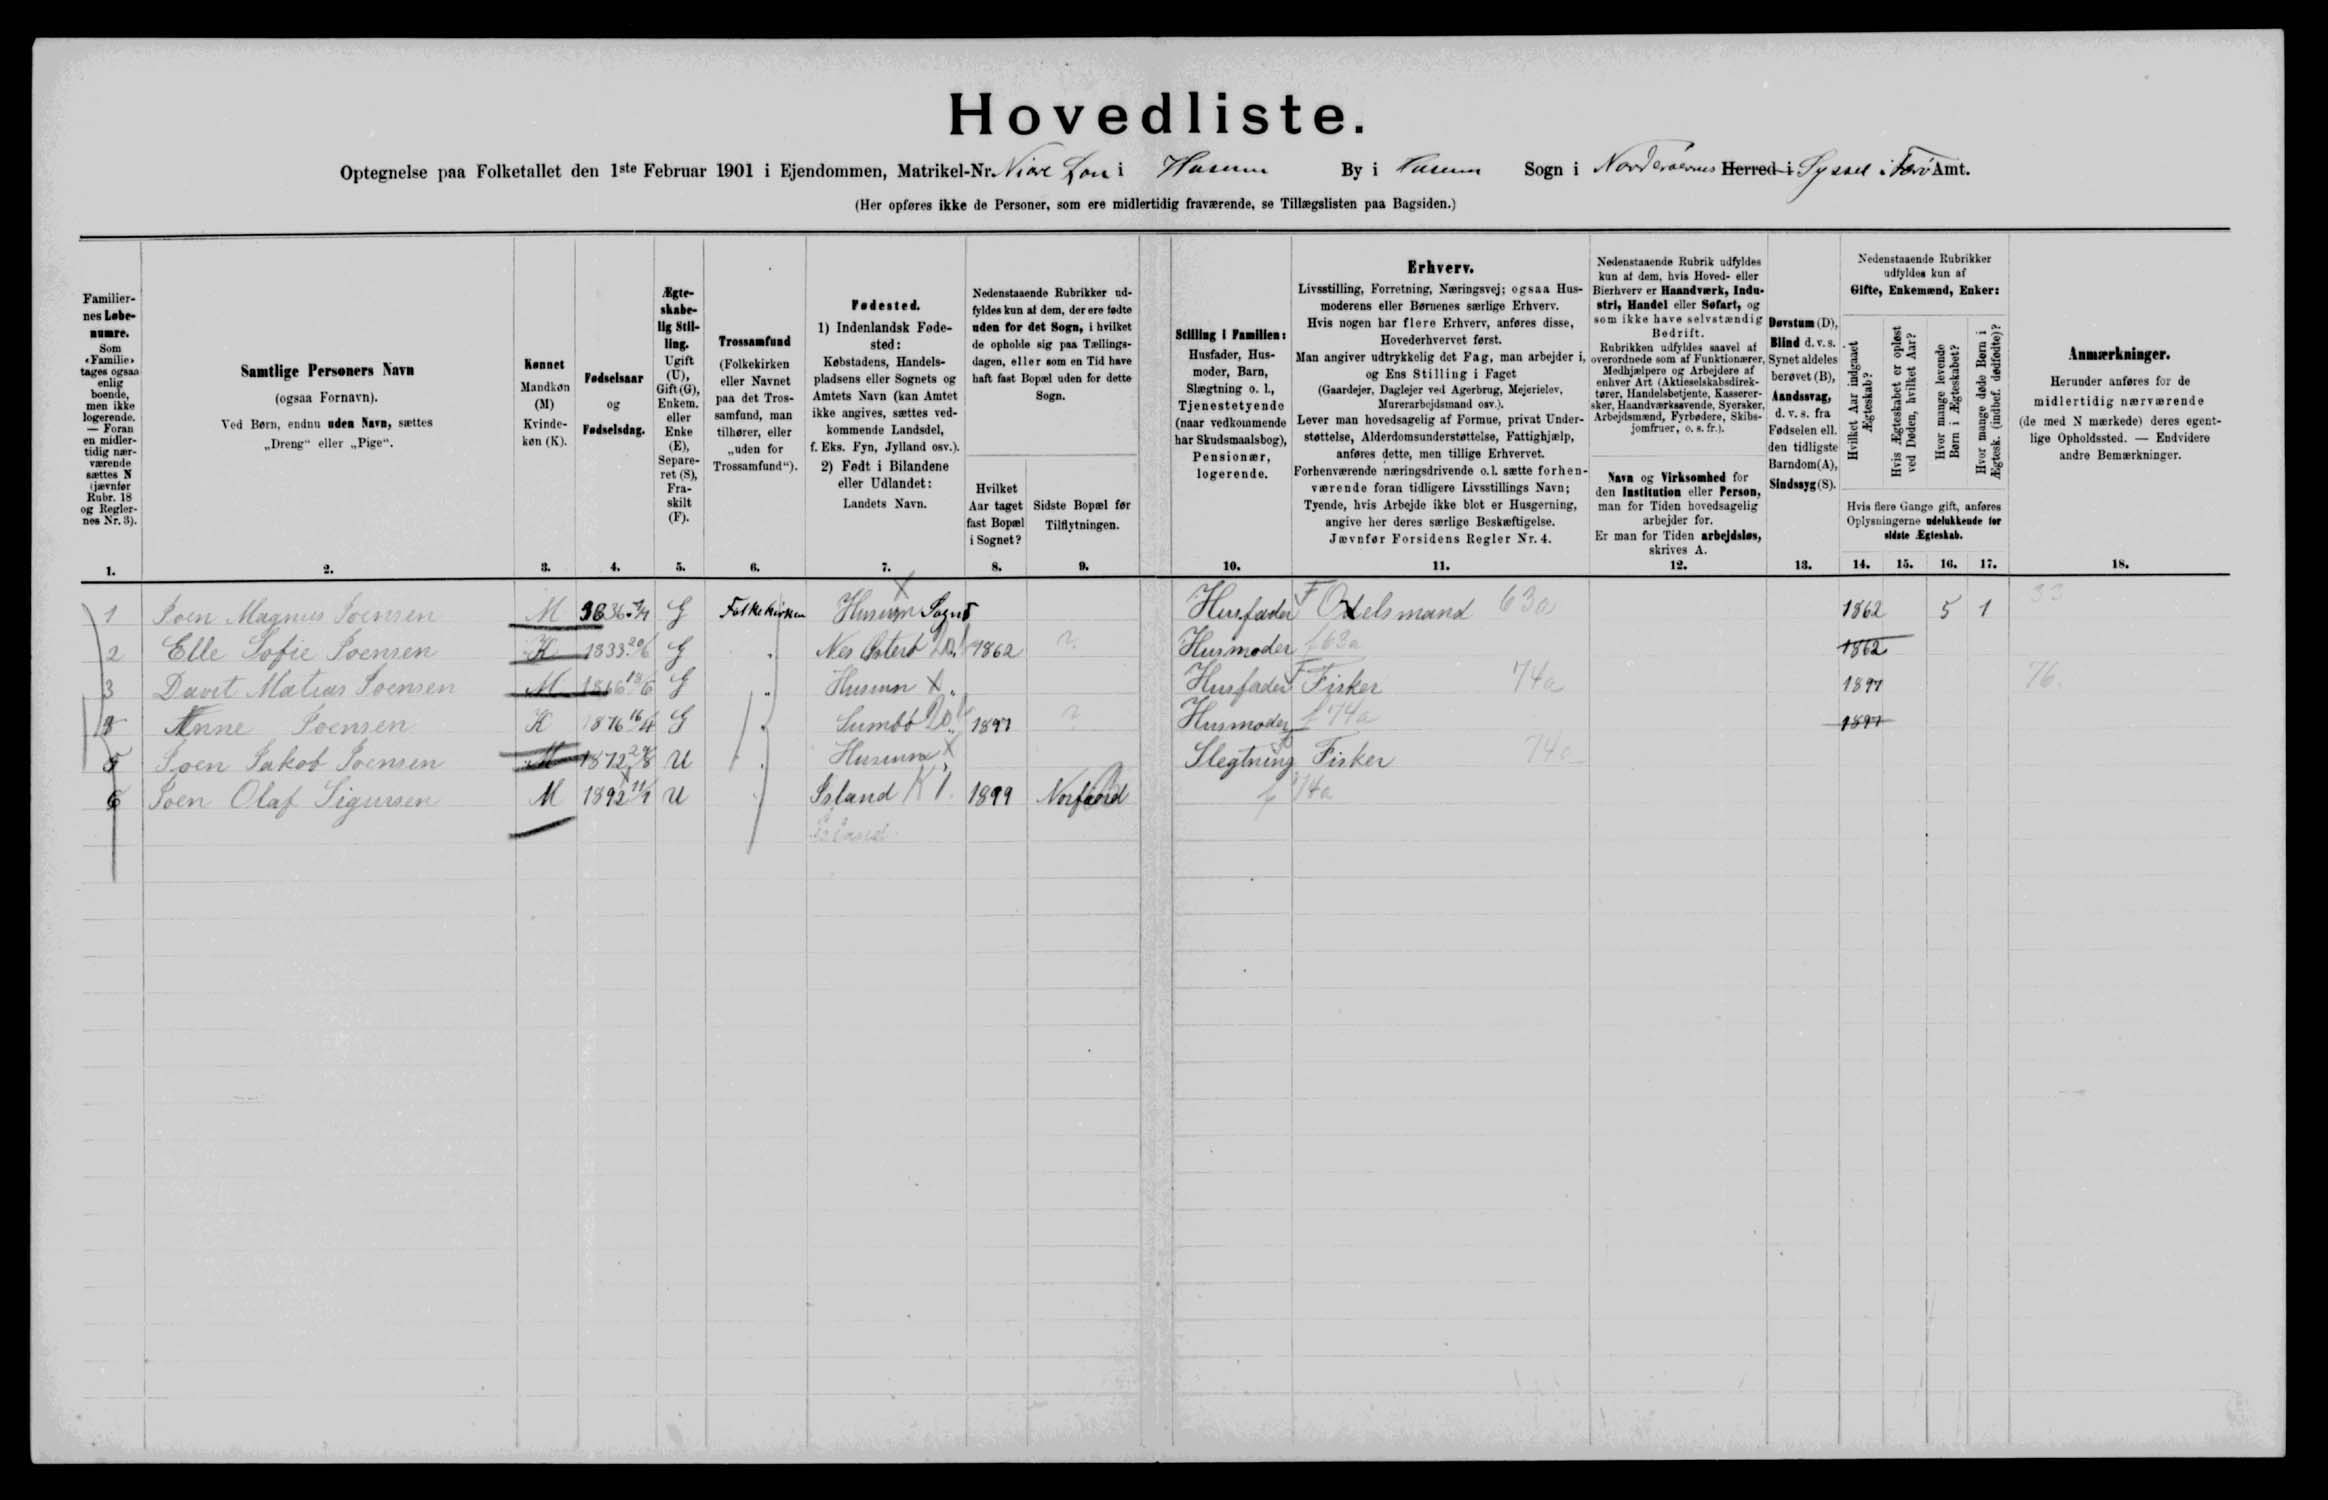 Hovedliste.
Optegnelse paa Folketallet den 1ste Februar 1901 i Ejendommen, Matrikel-Nr. i Husum By i Husum Sogn i Norderøernes Herred i Syssel i Færø Amt.
(Her opføres ikke de Personer, som ere midlertidig fraværende, se Tillægslisten paa Bagsiden.)
Familiernes Løbenumre.
Som «Familie» tages ogsaa enlig boende, men ikke logerende. — Foran en midlertidig nærværende sættes N (jævnfør Rubr. 18 og Reglernes Nr. 3).
Samtlige Personers Navn
(ogsaa Fornavn).
Ved Børn, endnu uden Navn, sættes
„Dreng“ eller „Pige“.
Kønnet
Mandkøn (M)
Kvindekøn (K).
Fødselsaar
og
Fødselsdag.
Ægteskabelig Stilling.
Ugift (U), Gift (G), Enkem. eller Enke (E), Separeret (S), Fraskilt (F).
Trossamfund
(Folkekirken eller Navnet paa det Trossamfund, man tilhører, eller „uden for Trossamfund“).
Fødested.
1) Indenlandsk Fødested:
Købstadens, Handelspladsens eller Sognets og Amtets Navn (kan Amtet ikke angives, sættes vedkommende Landsdel, f. Eks. Fyn, Jylland osv.).
2) Født i Bilandene eller Udlandet:
Landets Navn.
Nedenstaaende Rubrikker udfyldes kun af dem, der ere fødte uden for det Sogn, i hvilket de opholde sig paa Tællingsdagen, eller som en Tid have haft fast Bopæl uden for dette Sogn.
Hvilket Aar taget fast Bopæl i Sognet?
Sidste Bopæl før Tilflytningen.
Stilling i Familien:
Husfader, Husmoder, Barn, Slægtning o. l., Tjenestetyende (naar vedkommende har Skudsmaalsbog), Pensionær, logerende.
Erhverv.
Livsstilling, Forretning, Næringsvej; ogsaa Husmoderens eller Børnenes særlige Erhverv.
Hvis nogen har flere Erhverv, anføres disse, Hovederhvervet først.
Man angiver udtrykkelig det Fag, man arbejder i, og Ens Stilling i Faget
(Gaardejer, Daglejer ved Agerbrug, Mejerielev, Murerarbejdsmand osv.).
Lever man hovedsagelig af Formue, privat Understøttelse, Alderdomsunderstøttelse, Fattighjælp, anføres dette, men tillige Erhvervet.
Forhenværende næringsdrivende o. l. sætte forhenværende foran tidligere Livsstillings Navn;
Tyende, hvis Arbejde ikke blot er Husgerning, angive her deres særlige Beskæftigelse.
Jævnfør Forsidens Regler Nr. 4.
Nedenstaaende Rubrik udfyldes kun af dem, hvis Hoved- eller Bierhverv er Haandværk, Industri, Handel eller Søfart, og som ikke have selvstændig Bedrift.
Rubrikken udfyldes saavel af overordnede som af Funktionærer, Medhjælpere og Arbejdere af enhver Art (Aktieselskabsdirektører, Handelsbetjente, Kasserersker, Haandværkssvende, Syersker, Arbejdsmænd, Fyrbødere, Skibsjomfruer, o. s. fr.).
Navn og Virksomhed for den Institution eller Person, man for Tiden hovedsagelig arbejder for.
Er man for Tiden arbejdsløs, skrives A.
Døvstum (D), Blind d. v. s. Synet aldeles berøvet (B), Aandssvag, d. v. s. fra Fødselen ell. den tidligste Barndom (A), Sindssyg (S).
Nedenstaaende Rubrikker udfyldes kun af
Gifte, Enkemænd, Enker:
Hvilket Aar indgaaet Ægteskab?
Hvis Ægteskabet er opløst ved Døden, hvilket Aar?
Hvor mange levende Børn i Ægteskabet?
Hvor mange døde Børn i Ægtesk. (indbef. dødfødte)?
Hvis flere Gange gift, anføres Oplysningerne udelukkende for sidste Ægteskab.
Anmærkninger.
Herunder anføres for de midlertidig nærværende (de med N mærkede) deres egentlige Opholdssted. — Endvidere andre Bemærkninger.
1. 2. 3. 4. 5. 6. 7. 8. 9. 10. 11. 12. 13. 14. 15. 16. 17. 18.
1 Joen Magnus Joensen M G Folkekirken Husum Sogns Husfader F Odelsmand 63a 1862 5 1
2 Elle Sofie Joensen K 1833 20/6 G " Nes Østerö 1862 ? Husmoder f 63a 1862
3 Davit Matias Joensen M 1866 G " Husum Husfader F Fisker 74a 1897 76.
Anne Joensen K 1876 16/4 G " Sumbö 1897 ? Husmoder f 74a 1897
5 Joen Jakob Joensen M 1872 U " Husum Slegtning Fisker 74a
6 Joen Olaf Sigursen M 1892 U Island 1899 Norfaord f 74a
Island